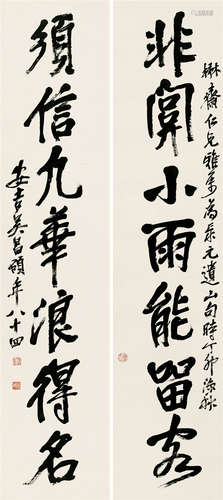 齋仁兄雅屬為集元遺山句時丁卯深秋
非闗小雨能畱客
須信九華浪得名
安吉吳昌碩年八十四